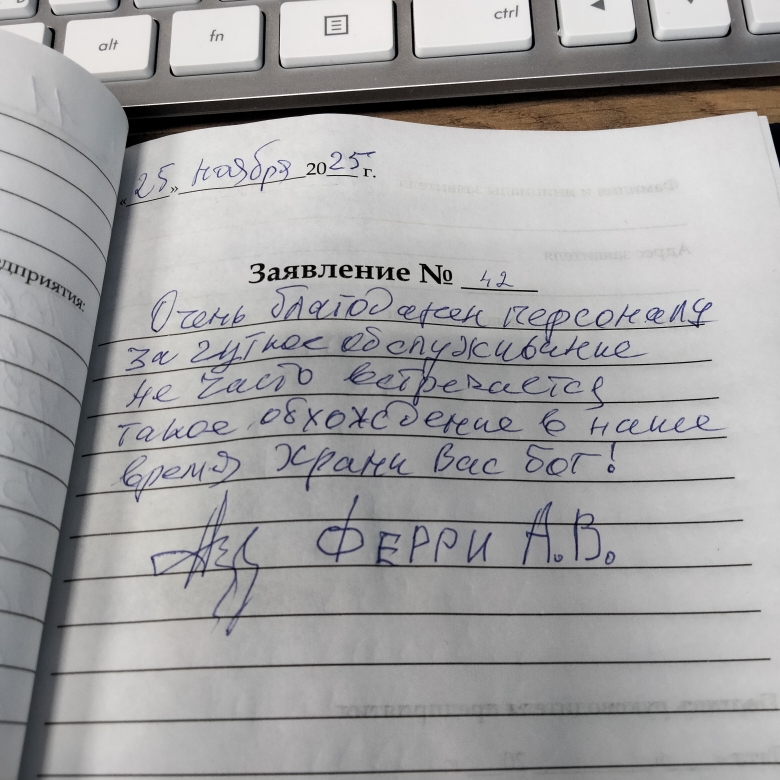 alt
fn
ctrl
«25» ноября 2025 г.
дприятия:
Заявление № 42
Очень благодарен персоналу
за чуткое обслуживание
не часто встречается
такое обхождение в наше
время Храни Вас бог!
ФЕРРИ А.В.
Фамилия и инициалы заявителя
Адрес заявителя